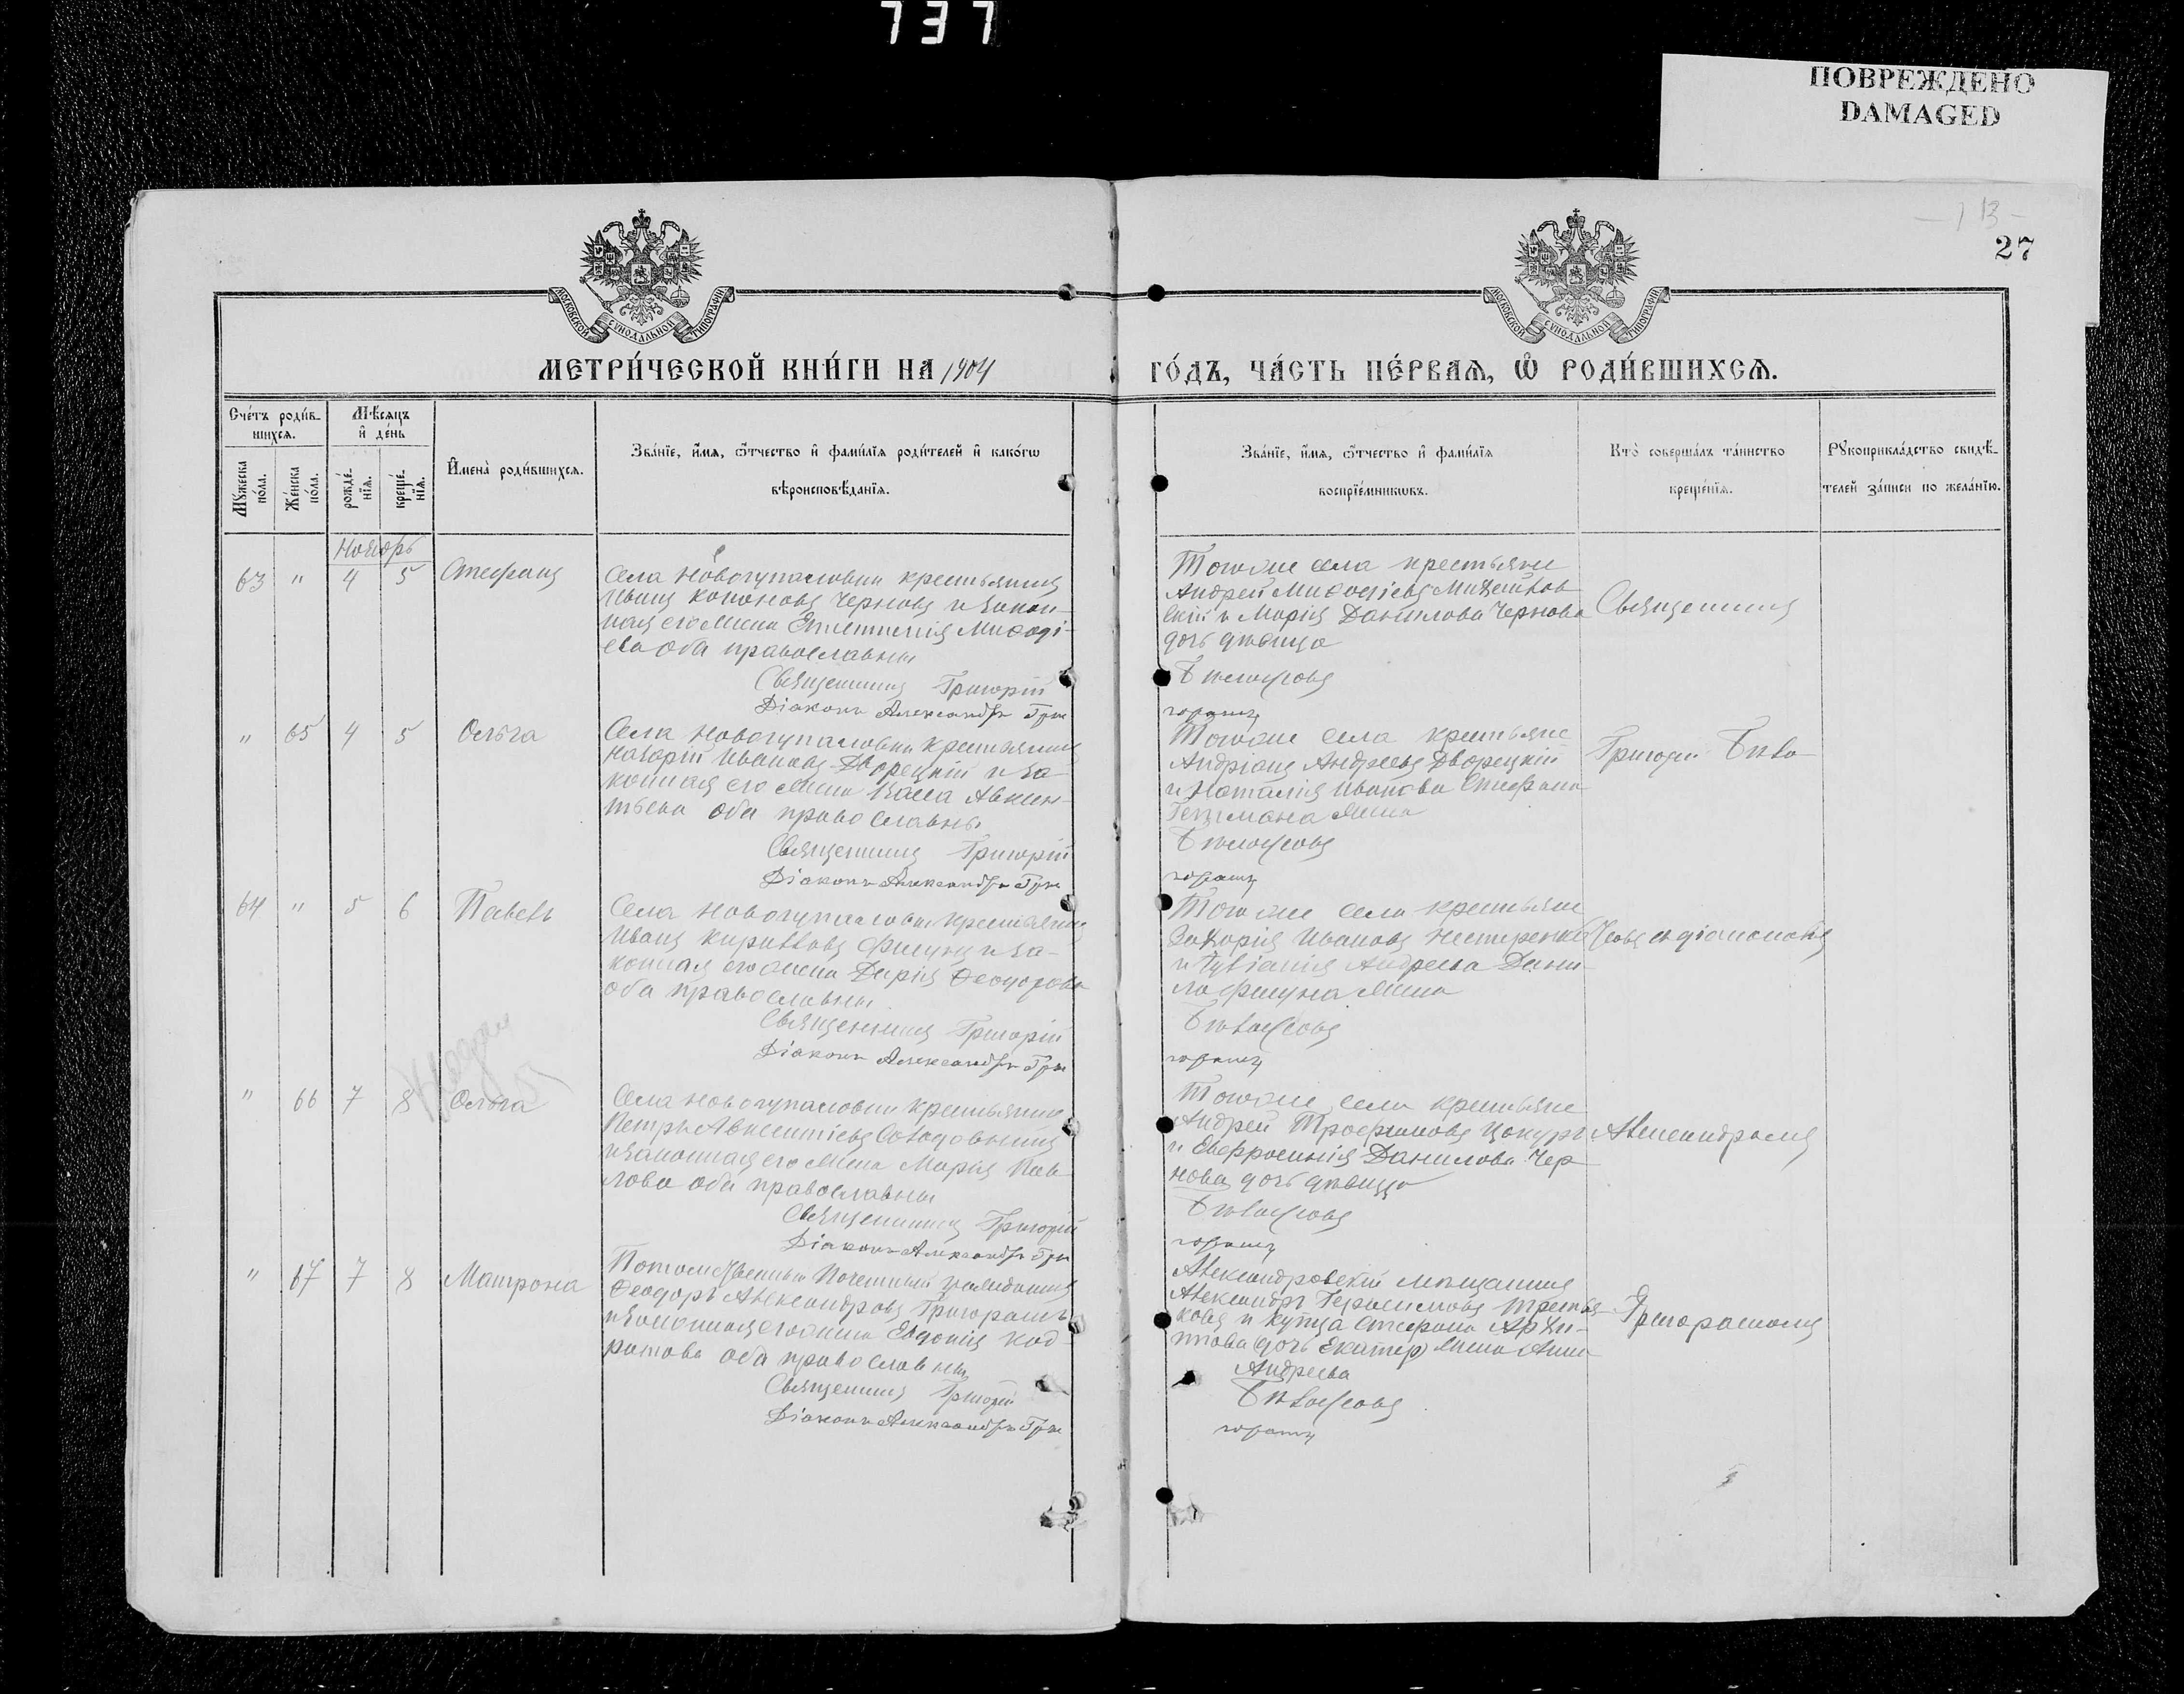 737
ПОВРЕЖДЕНО
DAMAGED
27
МОСКОВСКОЙ СУНОДАЛЬНОЙ ТИПОГРАФІИ
МОСКОВСКОЙ СУНОДАЛЬНОЙ ТИПОГРАФІИ
МЕТРИ́ЧЕСКОЙ КНИ́ГИ НА 1904
ГО́ДЪ, ЧА́СТЬ ПЕ́РВАѦ, Ѡ҆ РОДИ́ВШИХСѦ.
Сче́тъ роди́в-
шихсѧ.
Мѣ́сѧцъ
и҆ де́нь
Мꙋ́жеска
по́ла.
Же́нска
по́ла.
рожде́-
нїѧ.
креще́-
нїѧ.
И҆мена̀ роди́вшихсѧ.
Зва́нїе, и҆́мѧ, ѻ҆́тчество и҆ фами́лїѧ роди́телей и҆ како́гѡ
вѣроисповѣ́данїѧ.
Зва́нїе, и҆́мѧ, ѻ҆́тчество и҆ фами́лїѧ
воспрїе́мникѡвъ.
Кто̀ соверша́лъ та́инство
креще́нїѧ.
Рꙋкоприкла́дство свидѣ́-
телей за́писи по жела́нїю.
Ноябрь
63 " 4 5 Стефанъ
Села Новогупаловки крестьянинъ
Иванъ Кононовъ Черновъ и закон-
ная его жена Епистимія Мифоді-
ева оба православны
Священникъ Григорій
Діаконъ Александръ Гри
Тогоже села крестьяне
Андрей Мифодіевъ
и Марія Данилова Чернова
дочь дѣвица
Бѣлоусовъ
горашъ
Священникъ
" 65 4 5 Ольга
Села Новогупаловки крестьянинъ
Назарій Ивановъ Дворецкій и за-
конная его жена Васса Авксен-
тьева оба православны
Священникъ Григорій
Діаконъ Александръ Гри
Тогоже села крестьяне
Андріанъ Андреевъ Дворецкій
и Наталія Иванова Стефана
Гетмана жена
Бѣлоусовъ
горашъ
Григорій Бѣло-
64 " 5 6 Павелъ
Села Новогупаловки крестьянинъ
Иванъ Кирилловъ Фисунъ и за-
конная его жена Дарія Феодорова
оба православны
Священникъ Григорій
Діаконъ Александръ Гри
Тогоже села крестьяне
Захарій Ивановъ Нестеренко
и Андреева Дани-
ла Фисуна жена
Бѣлоусовъ
горашъ
усовъ съ діакономъ
" 66 7 8 Ольга
Села Новогупаловки крестьянинъ
Петръ Авксентіевъ
и законная его жена Марія Пав-
лова оба православны
Священникъ Григорій
Діаконъ Александръ Гри
Тогоже села крестьяне
Андрей Трофимовъ Цокуръ
и Евфросинія Данилова Чер-
нова дочь дѣвица
Бѣлоусовъ
горашъ
Александромъ
" 67 7 8 Матрона
Потомственный Почетный гражданинъ
Феодоръ Александровъ Григорашъ
и законная его жена Евдокія Код-
ратова оба православны
Священникъ Григорій
Діаконъ Александръ Гри
Александровскій мѣщанинъ
Александръ Герасимовъ Третья-
ковъ и купца Стефана Архи-
пова (дочь Екатер) жена Анна
Андреева
Бѣлоусовъ
горашъ
Григорашомъ